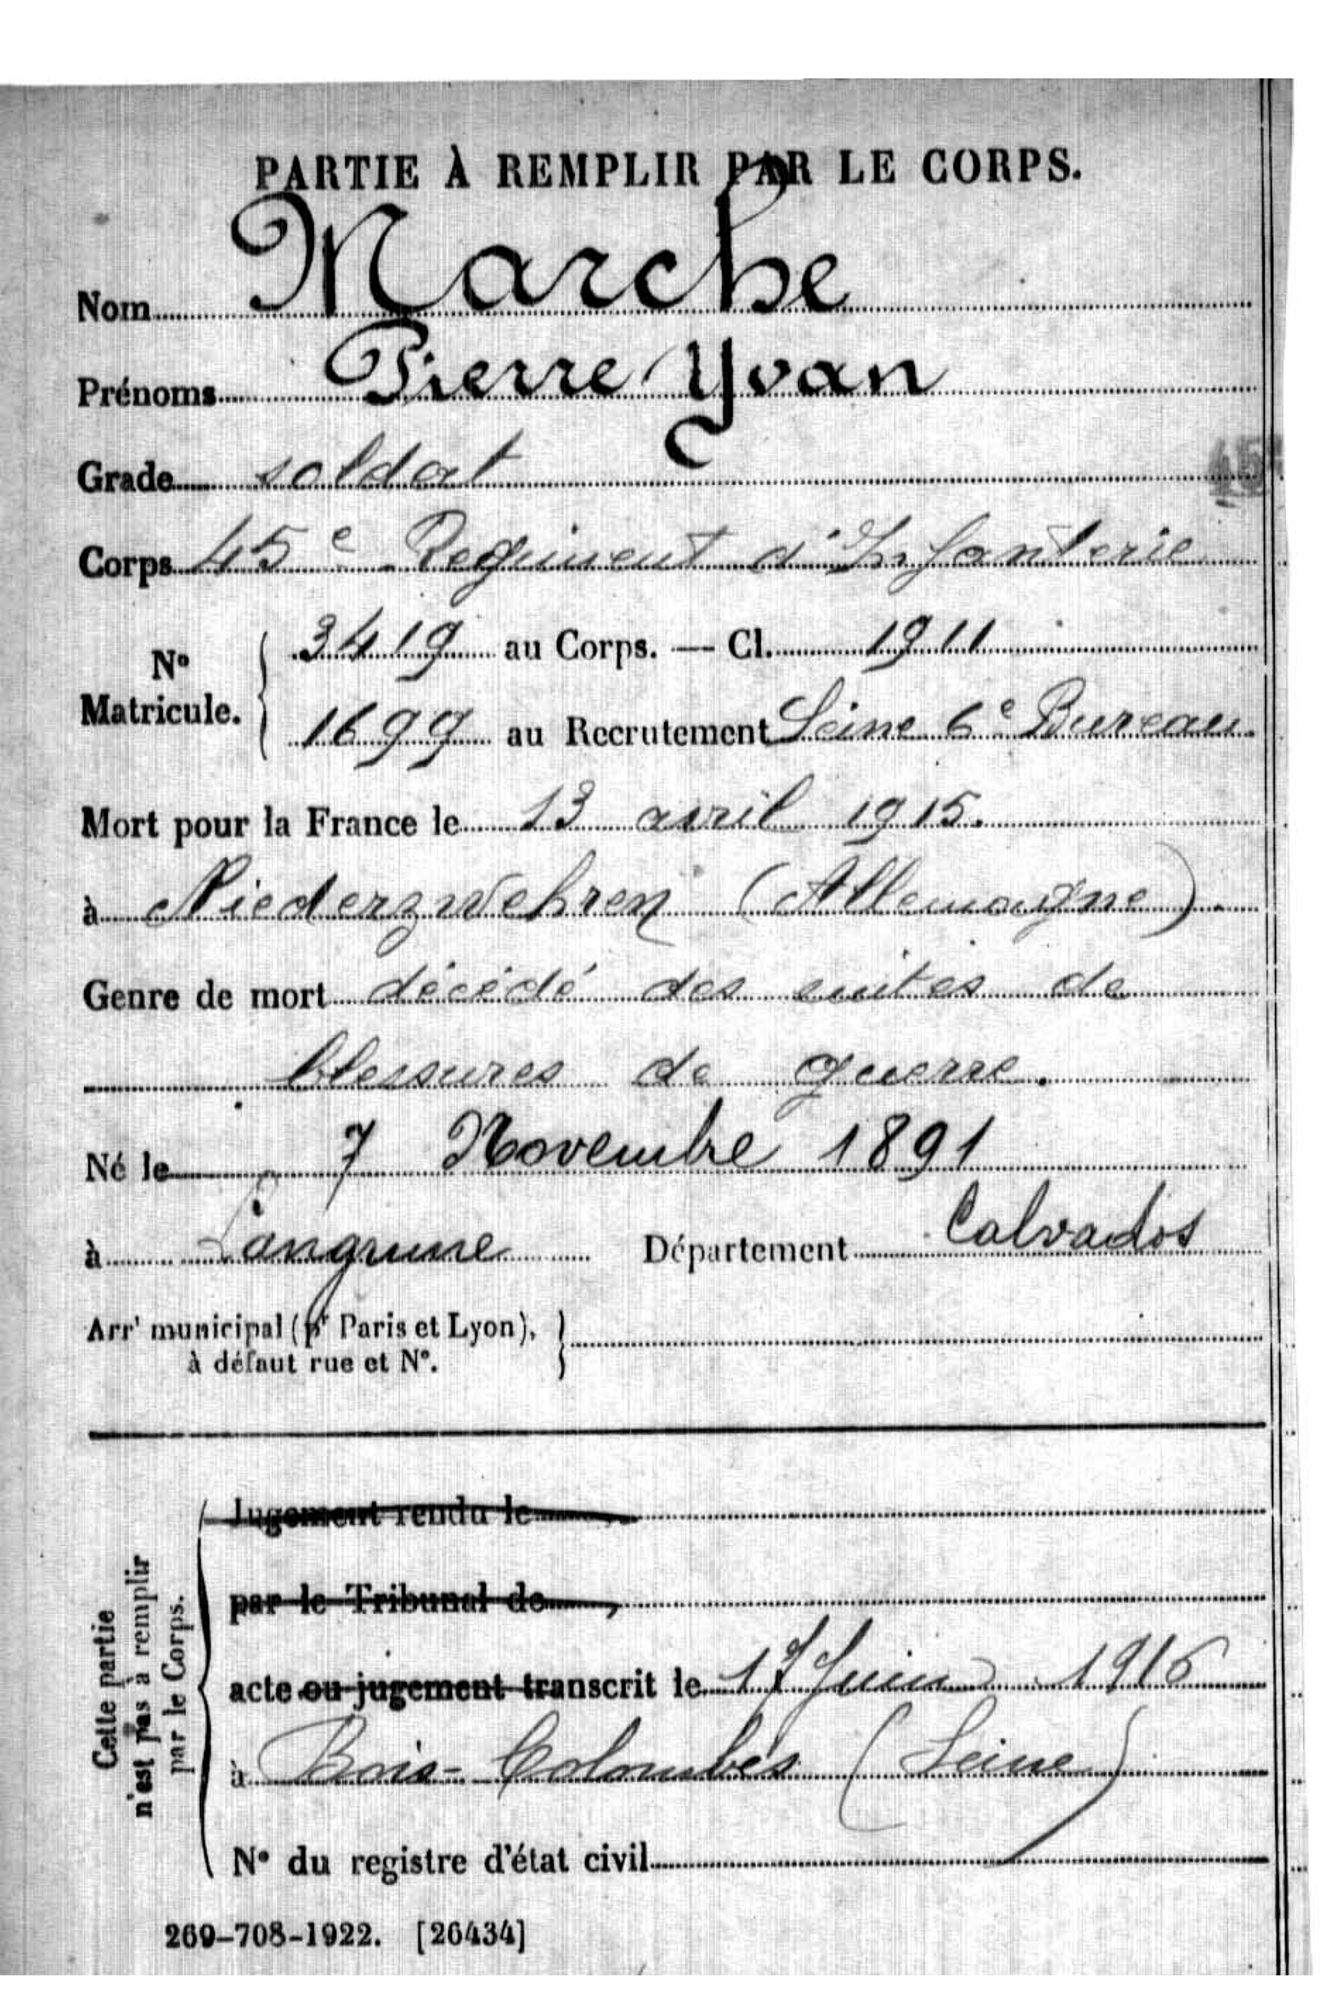 PARTIE À REMPLIR PAR LE CORPS.
Nom Marche
Prénoms Pierre Yvan
Grade soldat
45
Corps 45e Régiment d'Infanterie
N° Matricule. { 3419 au Corps. — Cl. 1911
1699 au Recrutement Seine 6e Bureau.
Mort pour la France le 13 avril 1915.
à Niederzwehren (Allemagne).
Genre de mort décédé des suites de
blessures de guerre.
Né le 7 Novembre 1891
à Langrune Département Calvados
Arrt municipal (pr Paris et Lyon),
à défaut rue et N°.
Cette partie
n'est pas à remplir
par le Corps.
Jugement rendu le
par le Tribunal de
acte ou jugement transcrit le 17 Juin 1916
à Bois-Colombes (Seine)
N° du registre d'état civil
269-708-1922. [26434]